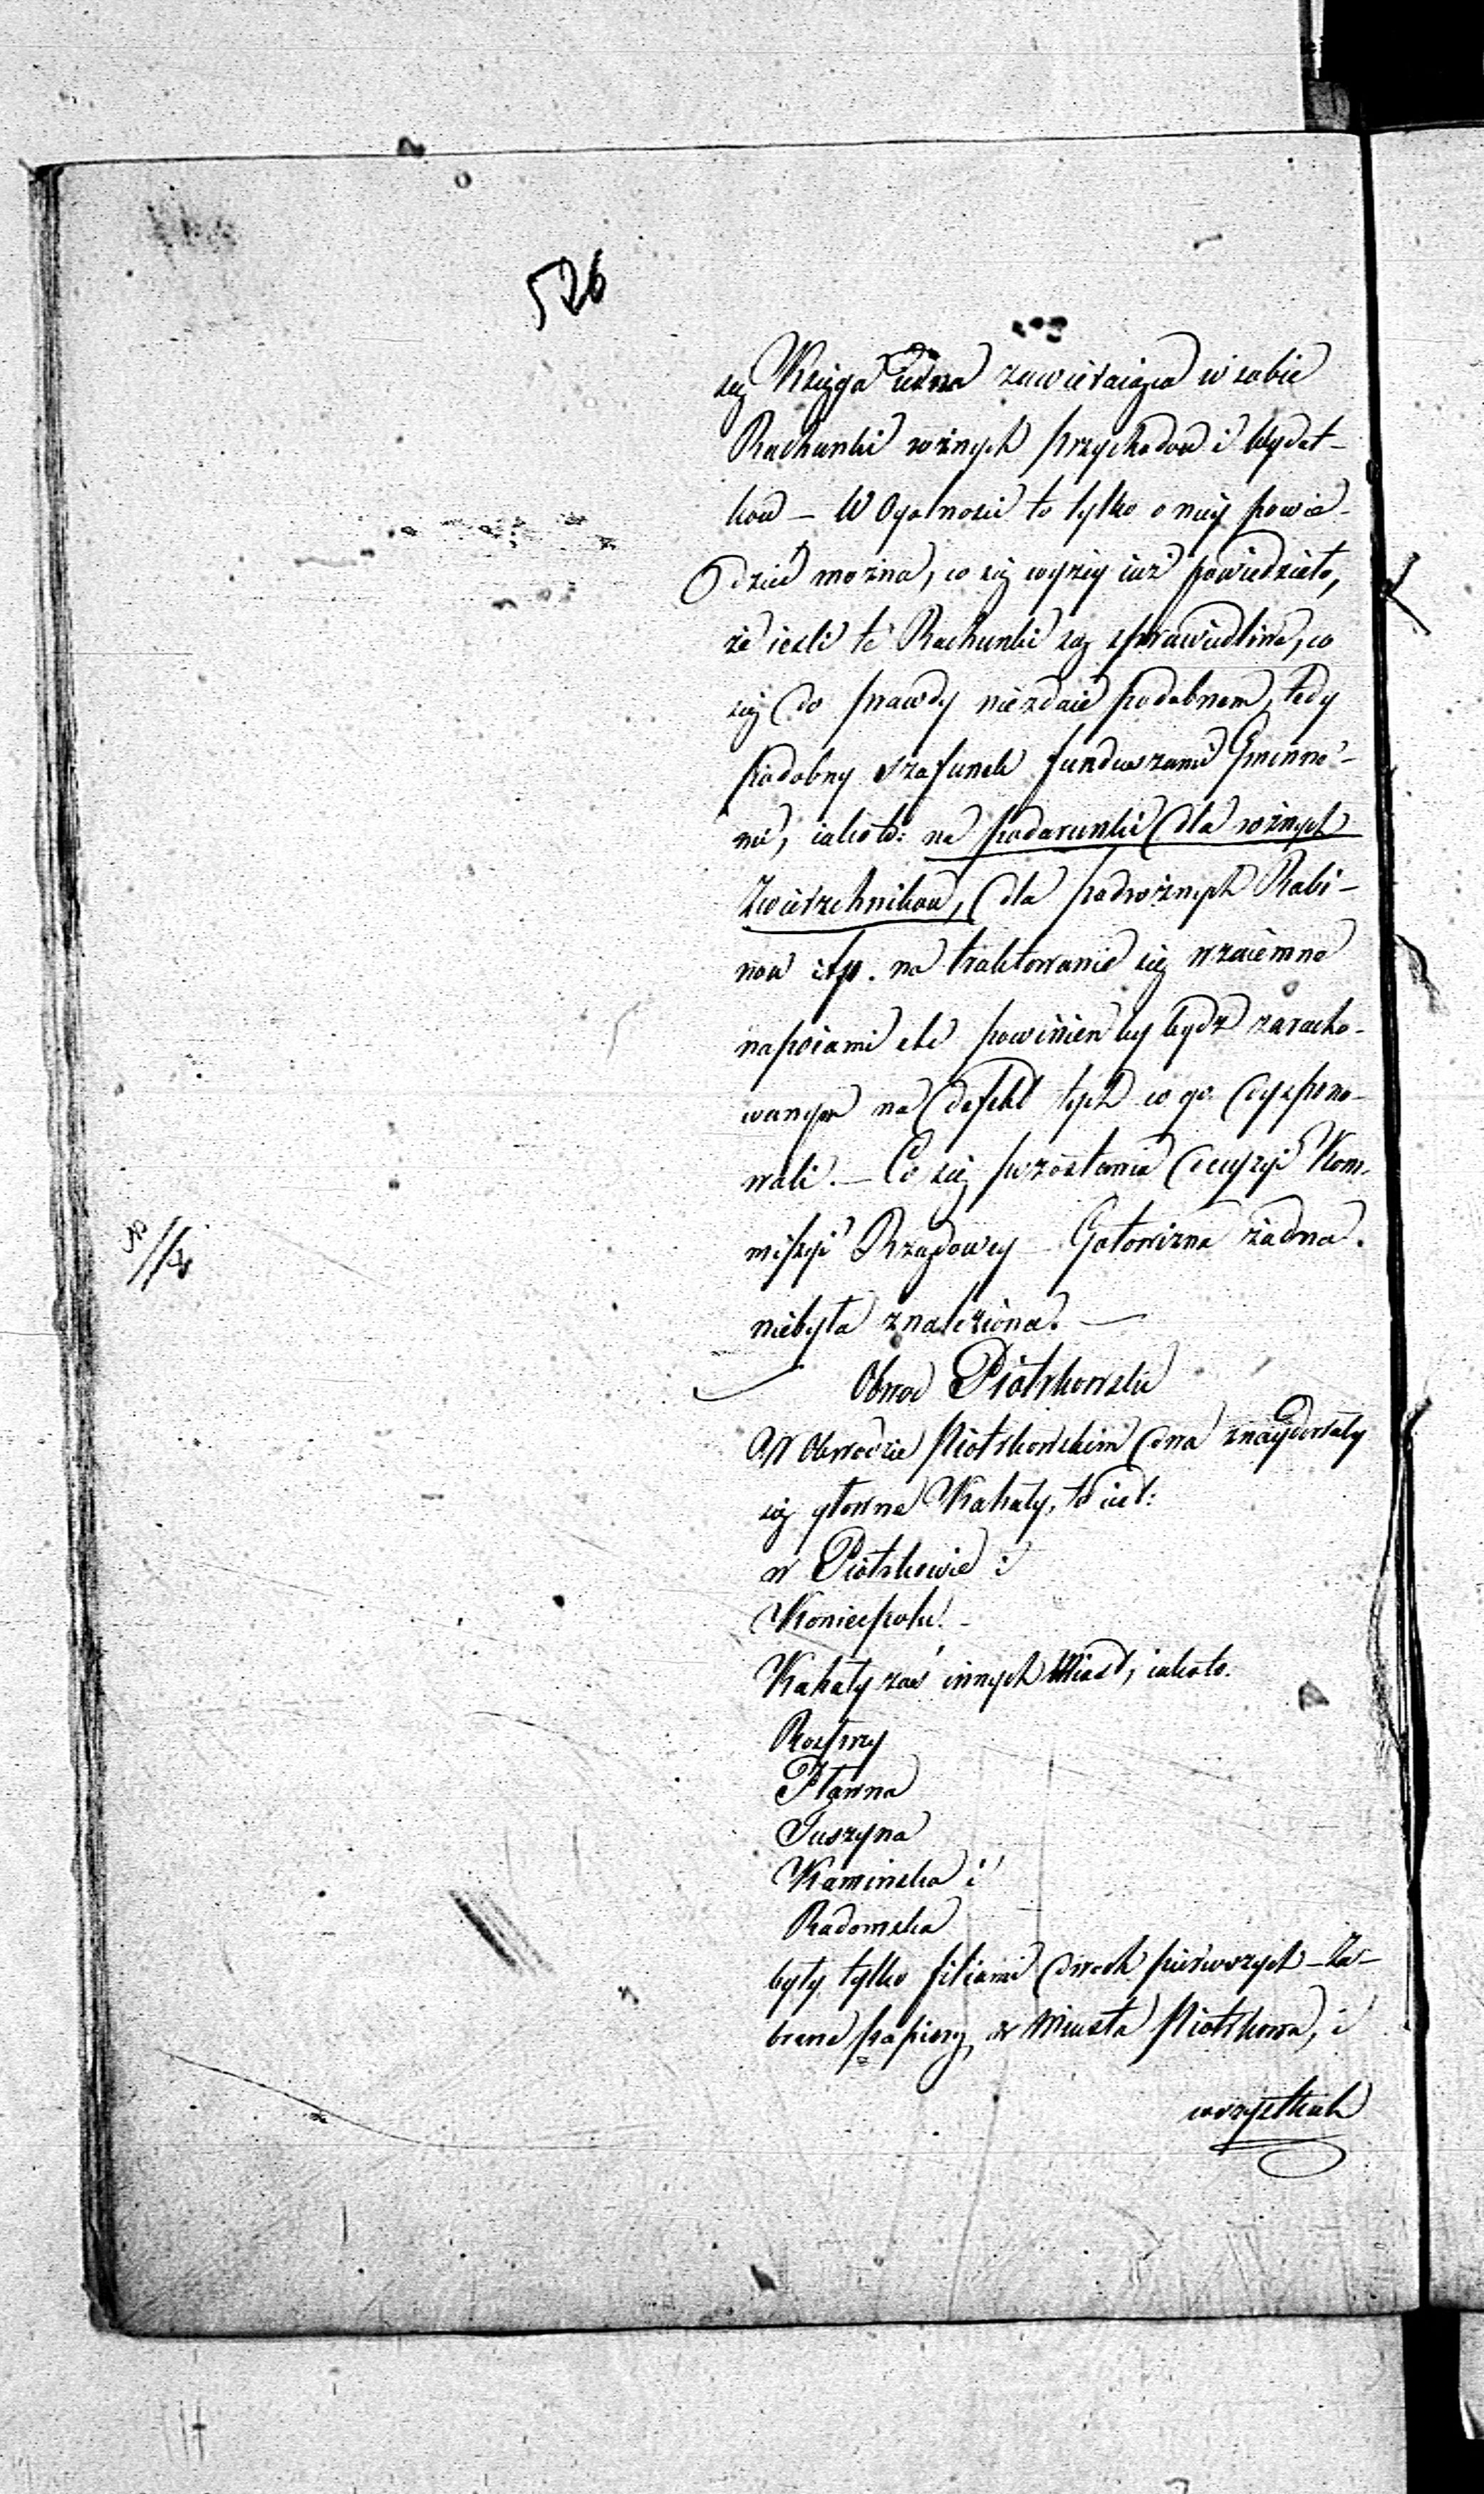 526
się Księga iedna zawieraiąca w sobie
Rachunki rożnych przychodow i Wydat-
kow – W Ogolnosci to tylko o niéy powie-
dzieć można, co się wyżéy iuż powiedziało,
że iesli te Rachunki są sprawiedliwe, co
się do prawdy niezdaie podobnem, tedy
podobny szafunek funduszami Gminne-
mi, iakoto: na podarunki dla rożnych
Zwierzchnikow, dla podrożnych Rabi-
now itp. na traktowanie się wzaiemne
napoiami etc powinien by bydź zaracho-
wanym na defekt tych co go dyspono-
wali. – Co się pozostawia decyzyi Kom-
missyi Rządowey – Gotowizna żadna
niebyła znaleziona. –
Obwod Piotrkowski
W Obwodzie Piotrkowskim dwa znaydowały
się głowne Kahały, to iest:
w Piotrkowie i
Koniecpolu. –
Kahały zaś innych Miast, iakoto:
Rosprzy
Pławna
Tuszyna
Kaminska i
Radomska
były tylko filiami dwoch pierwszych – Za-
brane papiery w Miasta Piotrkowa, i
wszystkich